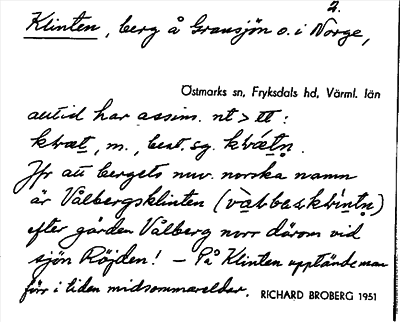 2.
Klinten, berg å Gransjön o. i Norge,
Östmarks sn, Fryksdals hd, Värml. län
autid har assim. nt > tt :
kɩwæt, m., best. sg. kɩwǽtn.
Jfr att bergets nuv. norska namn
är Vålbergsklinten (
efter gården Vålberg norr därom vid
sjön Röjden! — På Klinten upptände man
förr i tiden midsommareldar. RICHARD BROBERG 1951